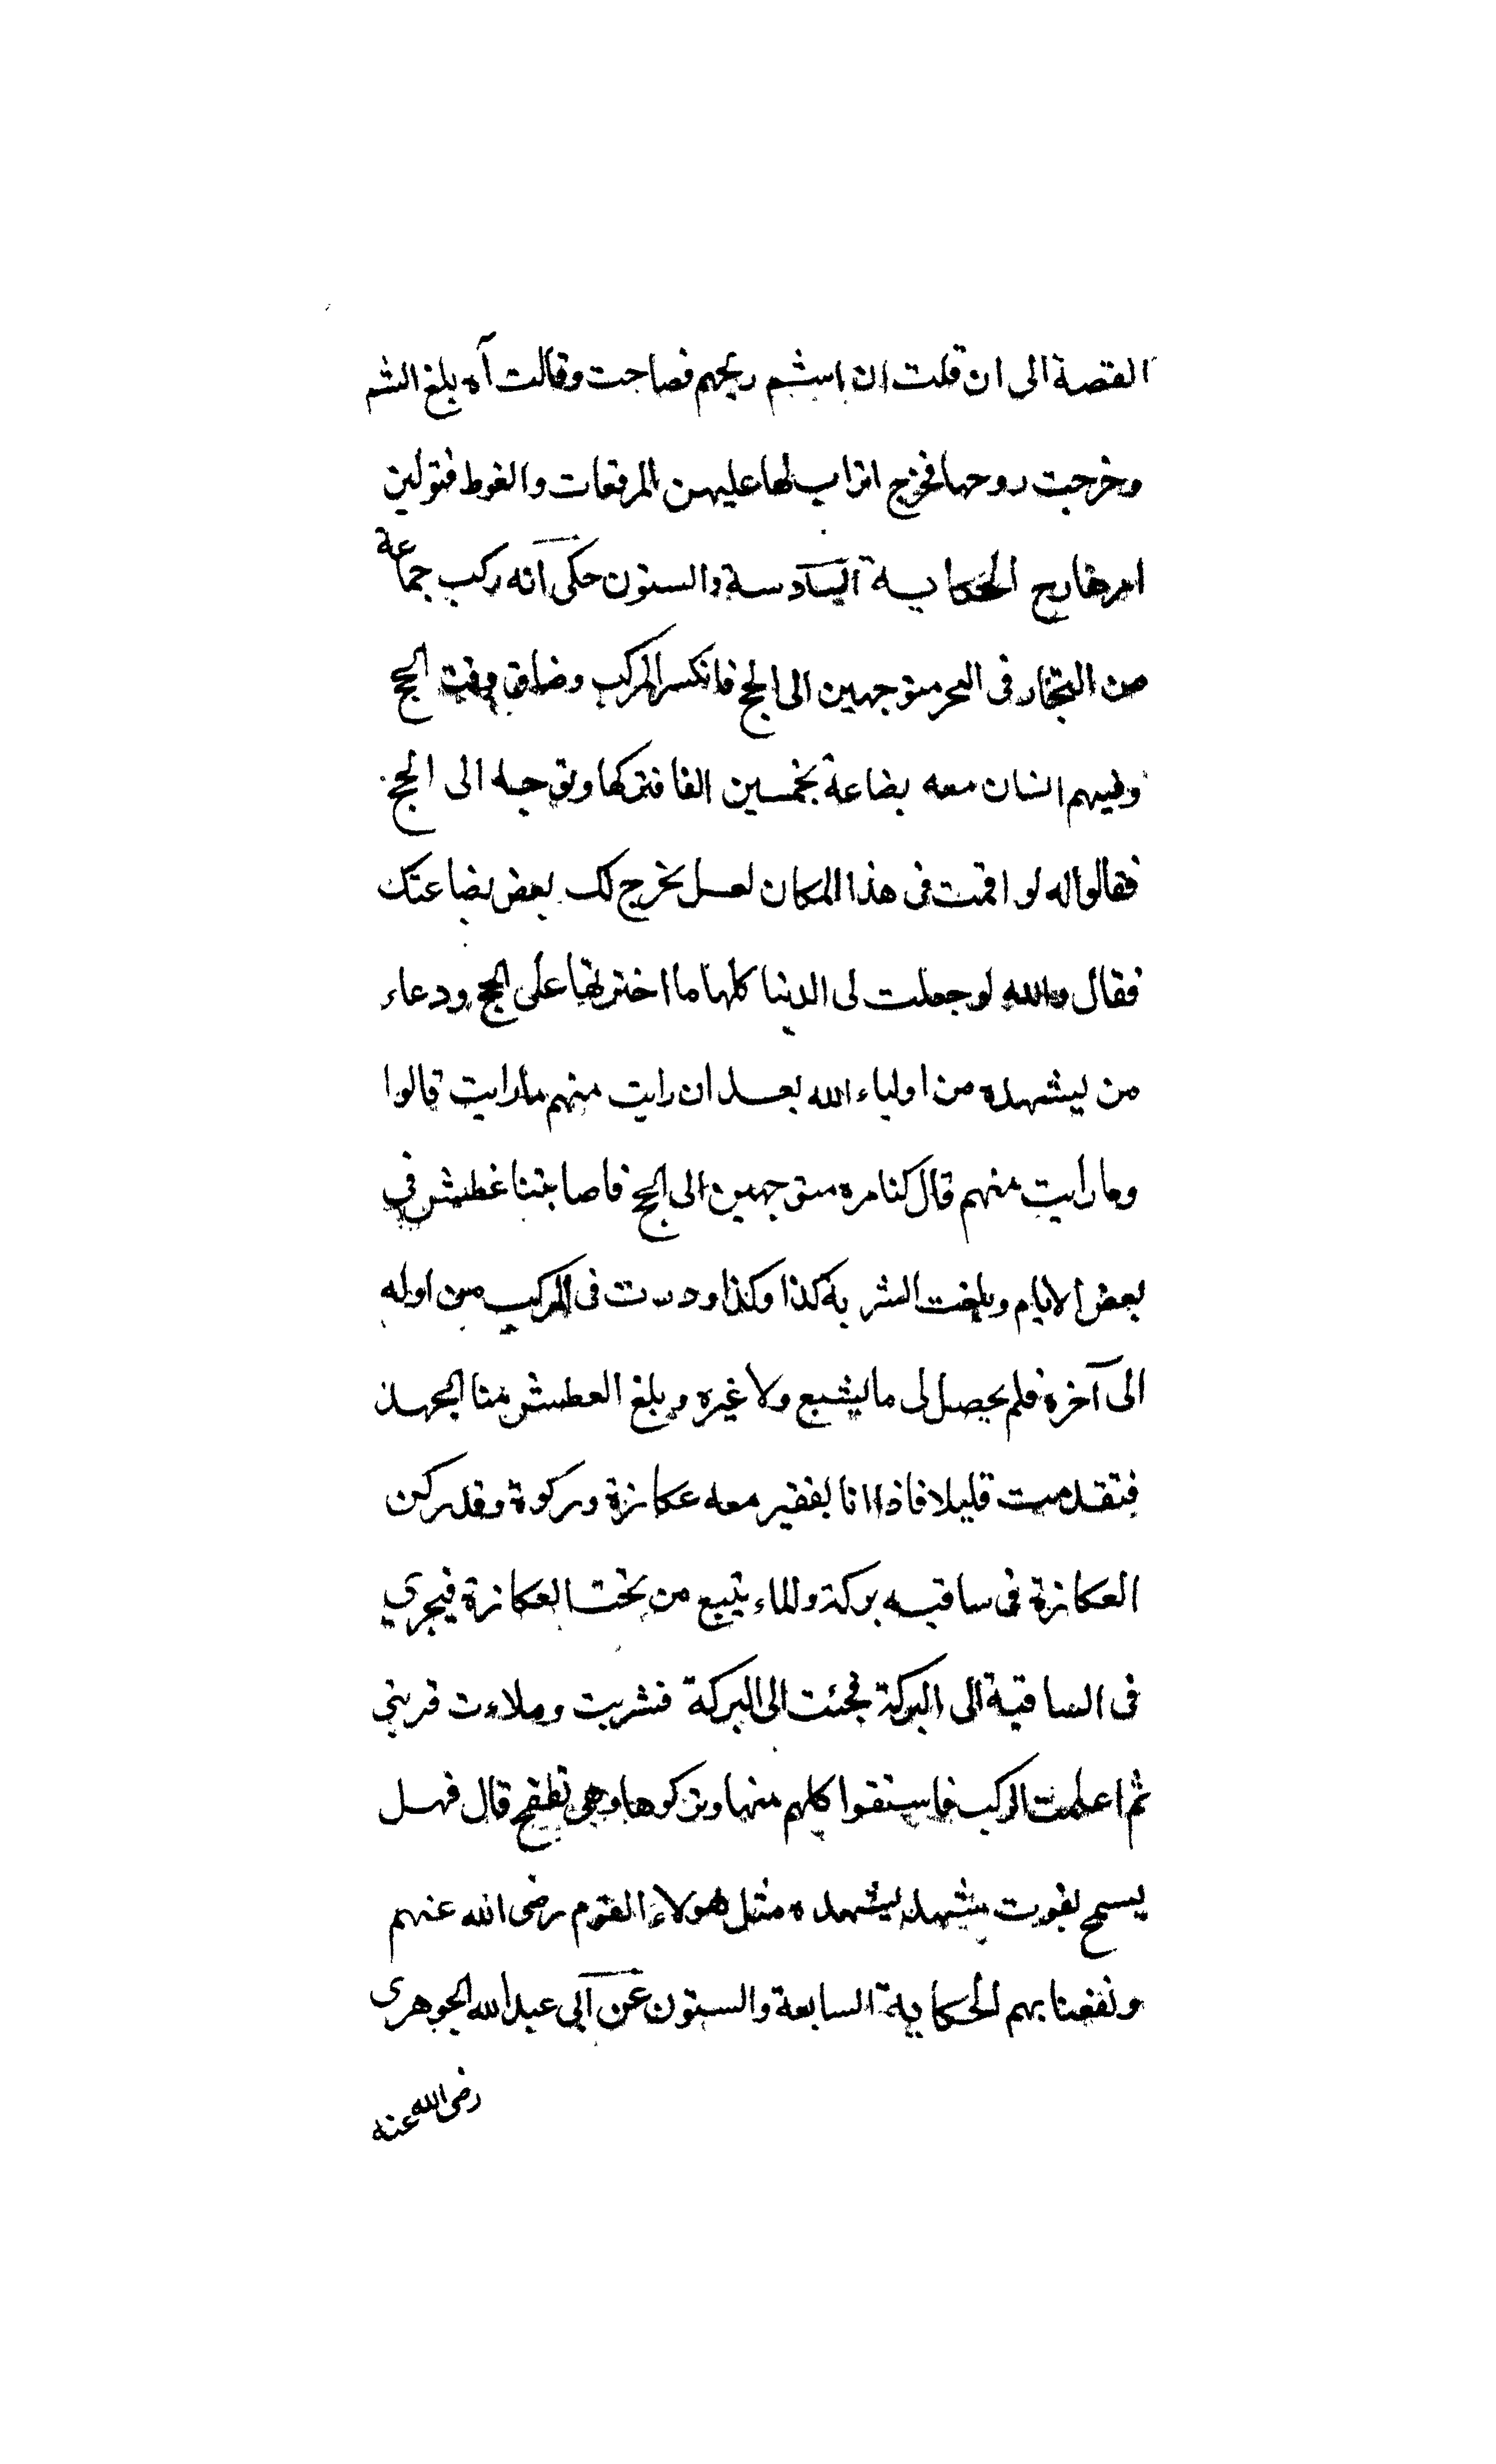 القصة الى ان قلت ان اشم ريحهم فصاحت وقالت آه بلغ الشم
وخرجت روحها فخرج اتراب لها عليهن المرقعات والفوط فتولين
امرها رح الحكاية السادسة والستون حكى انه ركب جماعة
من التجار فى البحر متوجهين الى الحج فانكسر المركب وضاق وقت الحج
وفيهم انسان معه بضاعة بخمسين الفا فتركها وتوجه الى الحج
فقالوا له لو اقمت فى هذا المكان لعل يخرج لك بعض بضاعتك
فقال والله لو جعلت لى الدنيا كلها ما اخترتها على الحج ودعاء
من يشهده من اولياء الله بعد ان رايت منهم ما رايت قالوا
وما رايت منهم قال كنا مره متوجهين الى الحج فاصابتنا عطش في
بعض الايام وبلغت الشربة كذا وكذا ودرت فى المركب من اوله
الى آخره فلم يحصل لى ما يشبع ولا غيره وبلغ العطش منا الجهد
فتقدمت قليلا فاذا انا بفقير معه عكازة وركوة وقد ركن
العكازة فى ساقيه بركة والماء يتبع من تحت العكازة فيجري
فى الساقية الى البركة فجئت الى البركة فشربت وملاءت قربتي
ثم اعلمت الركب فاستقوا كلهم منها وتركوها وهى تطفح قال فهل
يسمح بفوت مشهد يشهده مثل هولاء القوم رضى الله عنهم
ونفعنا بهم الحكاية السابعة والستون عن ابى عبد الله الجوهرى
رضى الله عنه